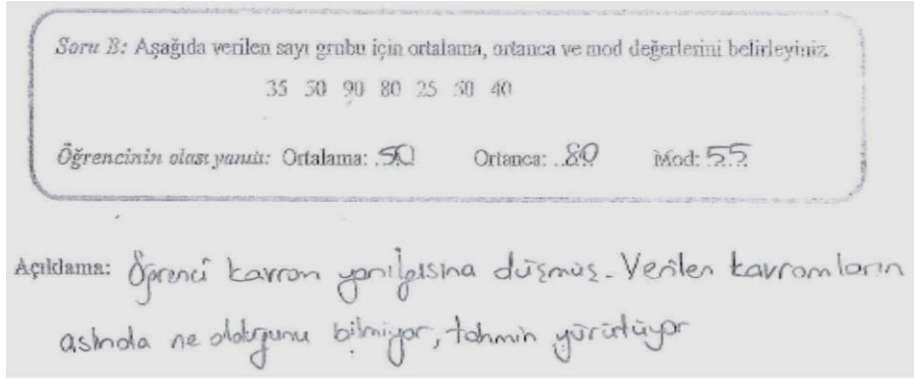 Soru B: Aşağıda verilen sayı grubu için ortalama, ortanca ve mod değerlerini belirleyiniz.
35 90 80 25 40
Öğrencinin olası yanıtı: Ortalama: 50 Ortanca: 80 Mod: 55
Açıklama: Öğrenci kavram yanılgısına düşmüş. Verilen kavramların
aslında ne olduğunu bilmiyor, tahmin yürütüyor